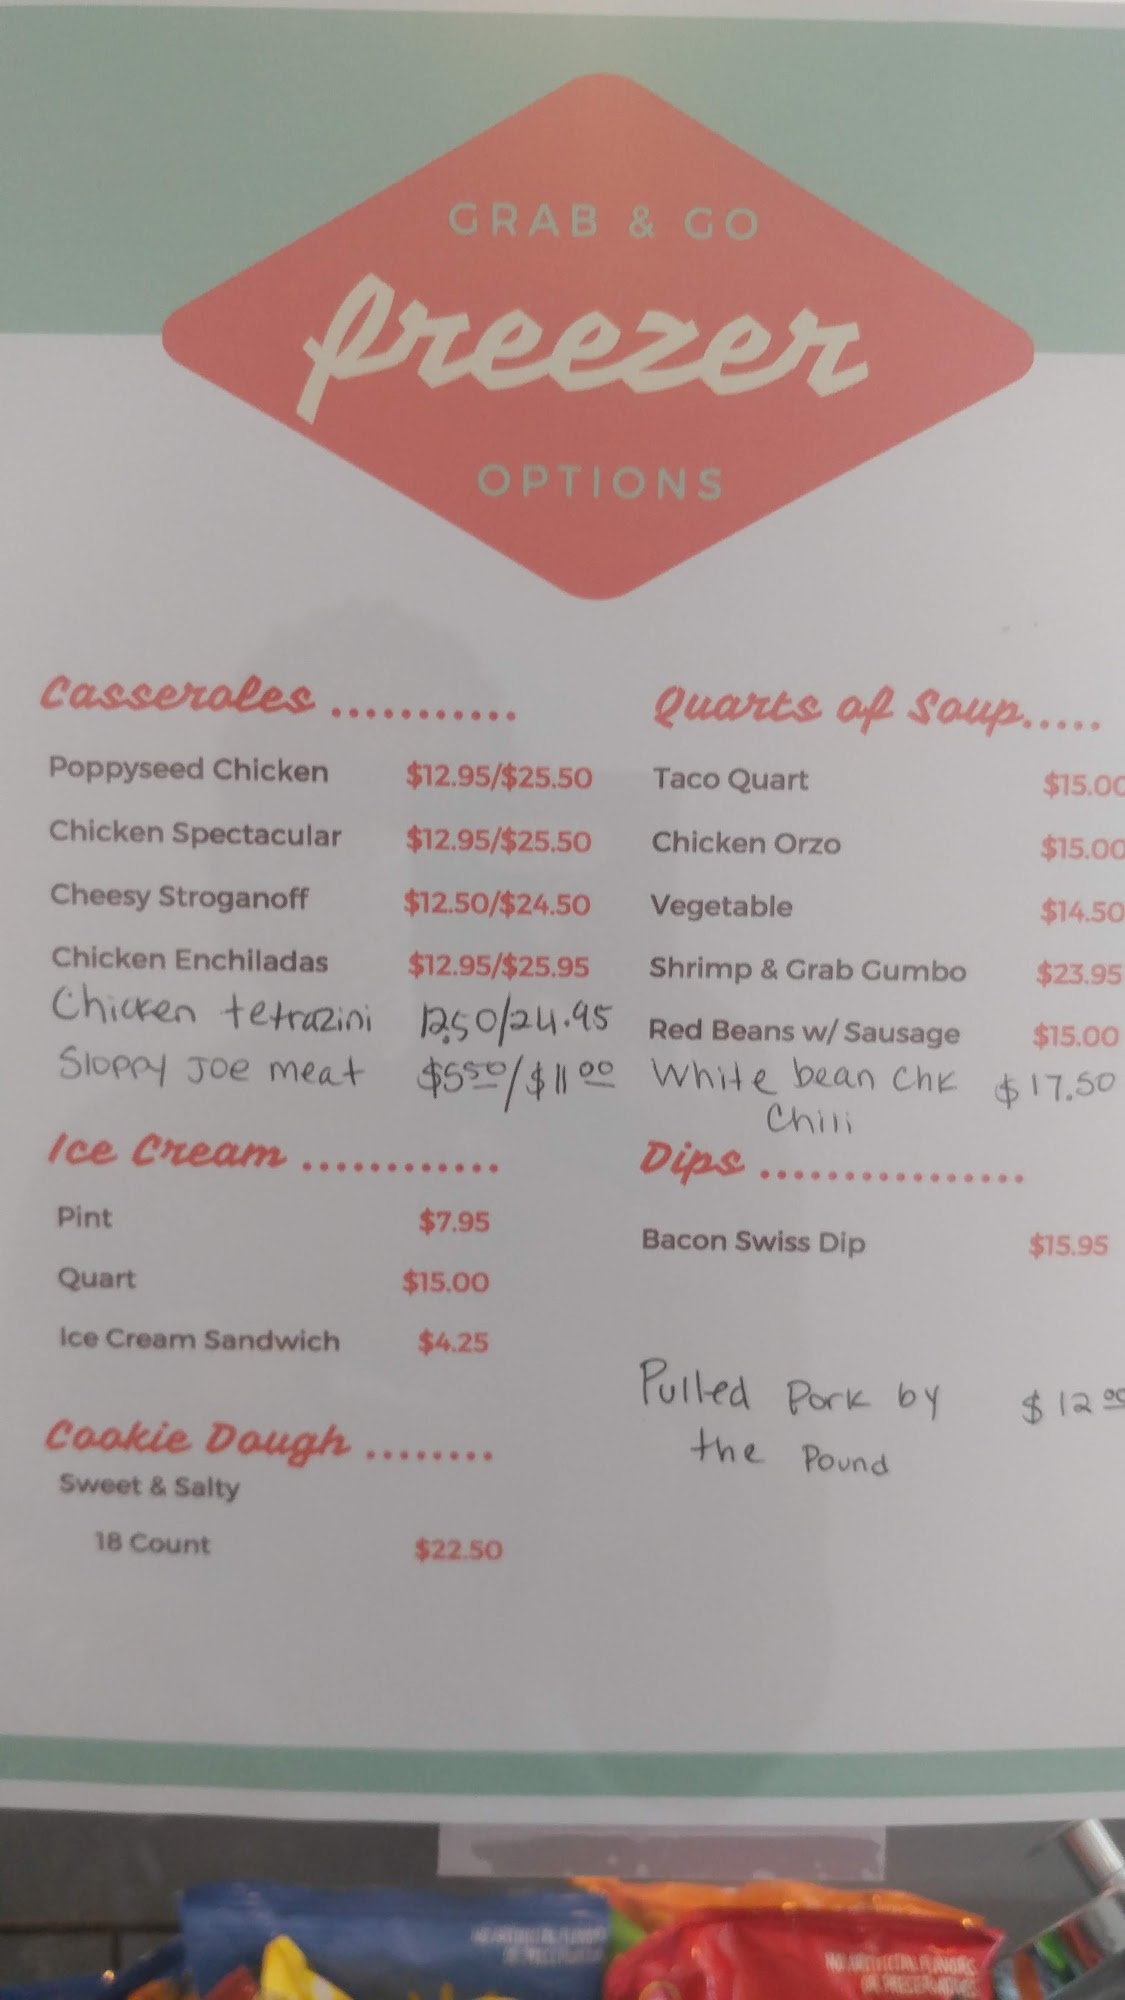 GRAB & GO
freezer
OPTIONS
Casseroles ...........
Poppyseed Chicken $12.95/$25.50
Chicken Spectacular $12.95/$25.50
Cheesy Stroganoff $12.50/$24.50
Chicken Enchiladas $12.95/$25.95
Chicken tetrazini 12.50/24.95
Sloppy Joe meat $5.50/$11.00
Ice Cream ............
Pint $7.95
Quart $15.00
Ice Cream Sandwich $4.25
Cookie Dough ........
Sweet & Salty
18 Count $22.50
Quarts of Soup.....
Taco Quart $15.00
Chicken Orzo $15.00
Vegetable $14.50
Shrimp & Grab Gumbo $23.95
Red Beans w/ Sausage $15.00
White bean Chk $17.50
Chili
Dips ................
Bacon Swiss Dip $15.95
Pulled Pork by $12.00
the Pound
NO ARTIFICIAL FLAVORS
OR PRESERVATIVES
NO ARTIFICIAL FLAVORS
OR PRESERVATIVES